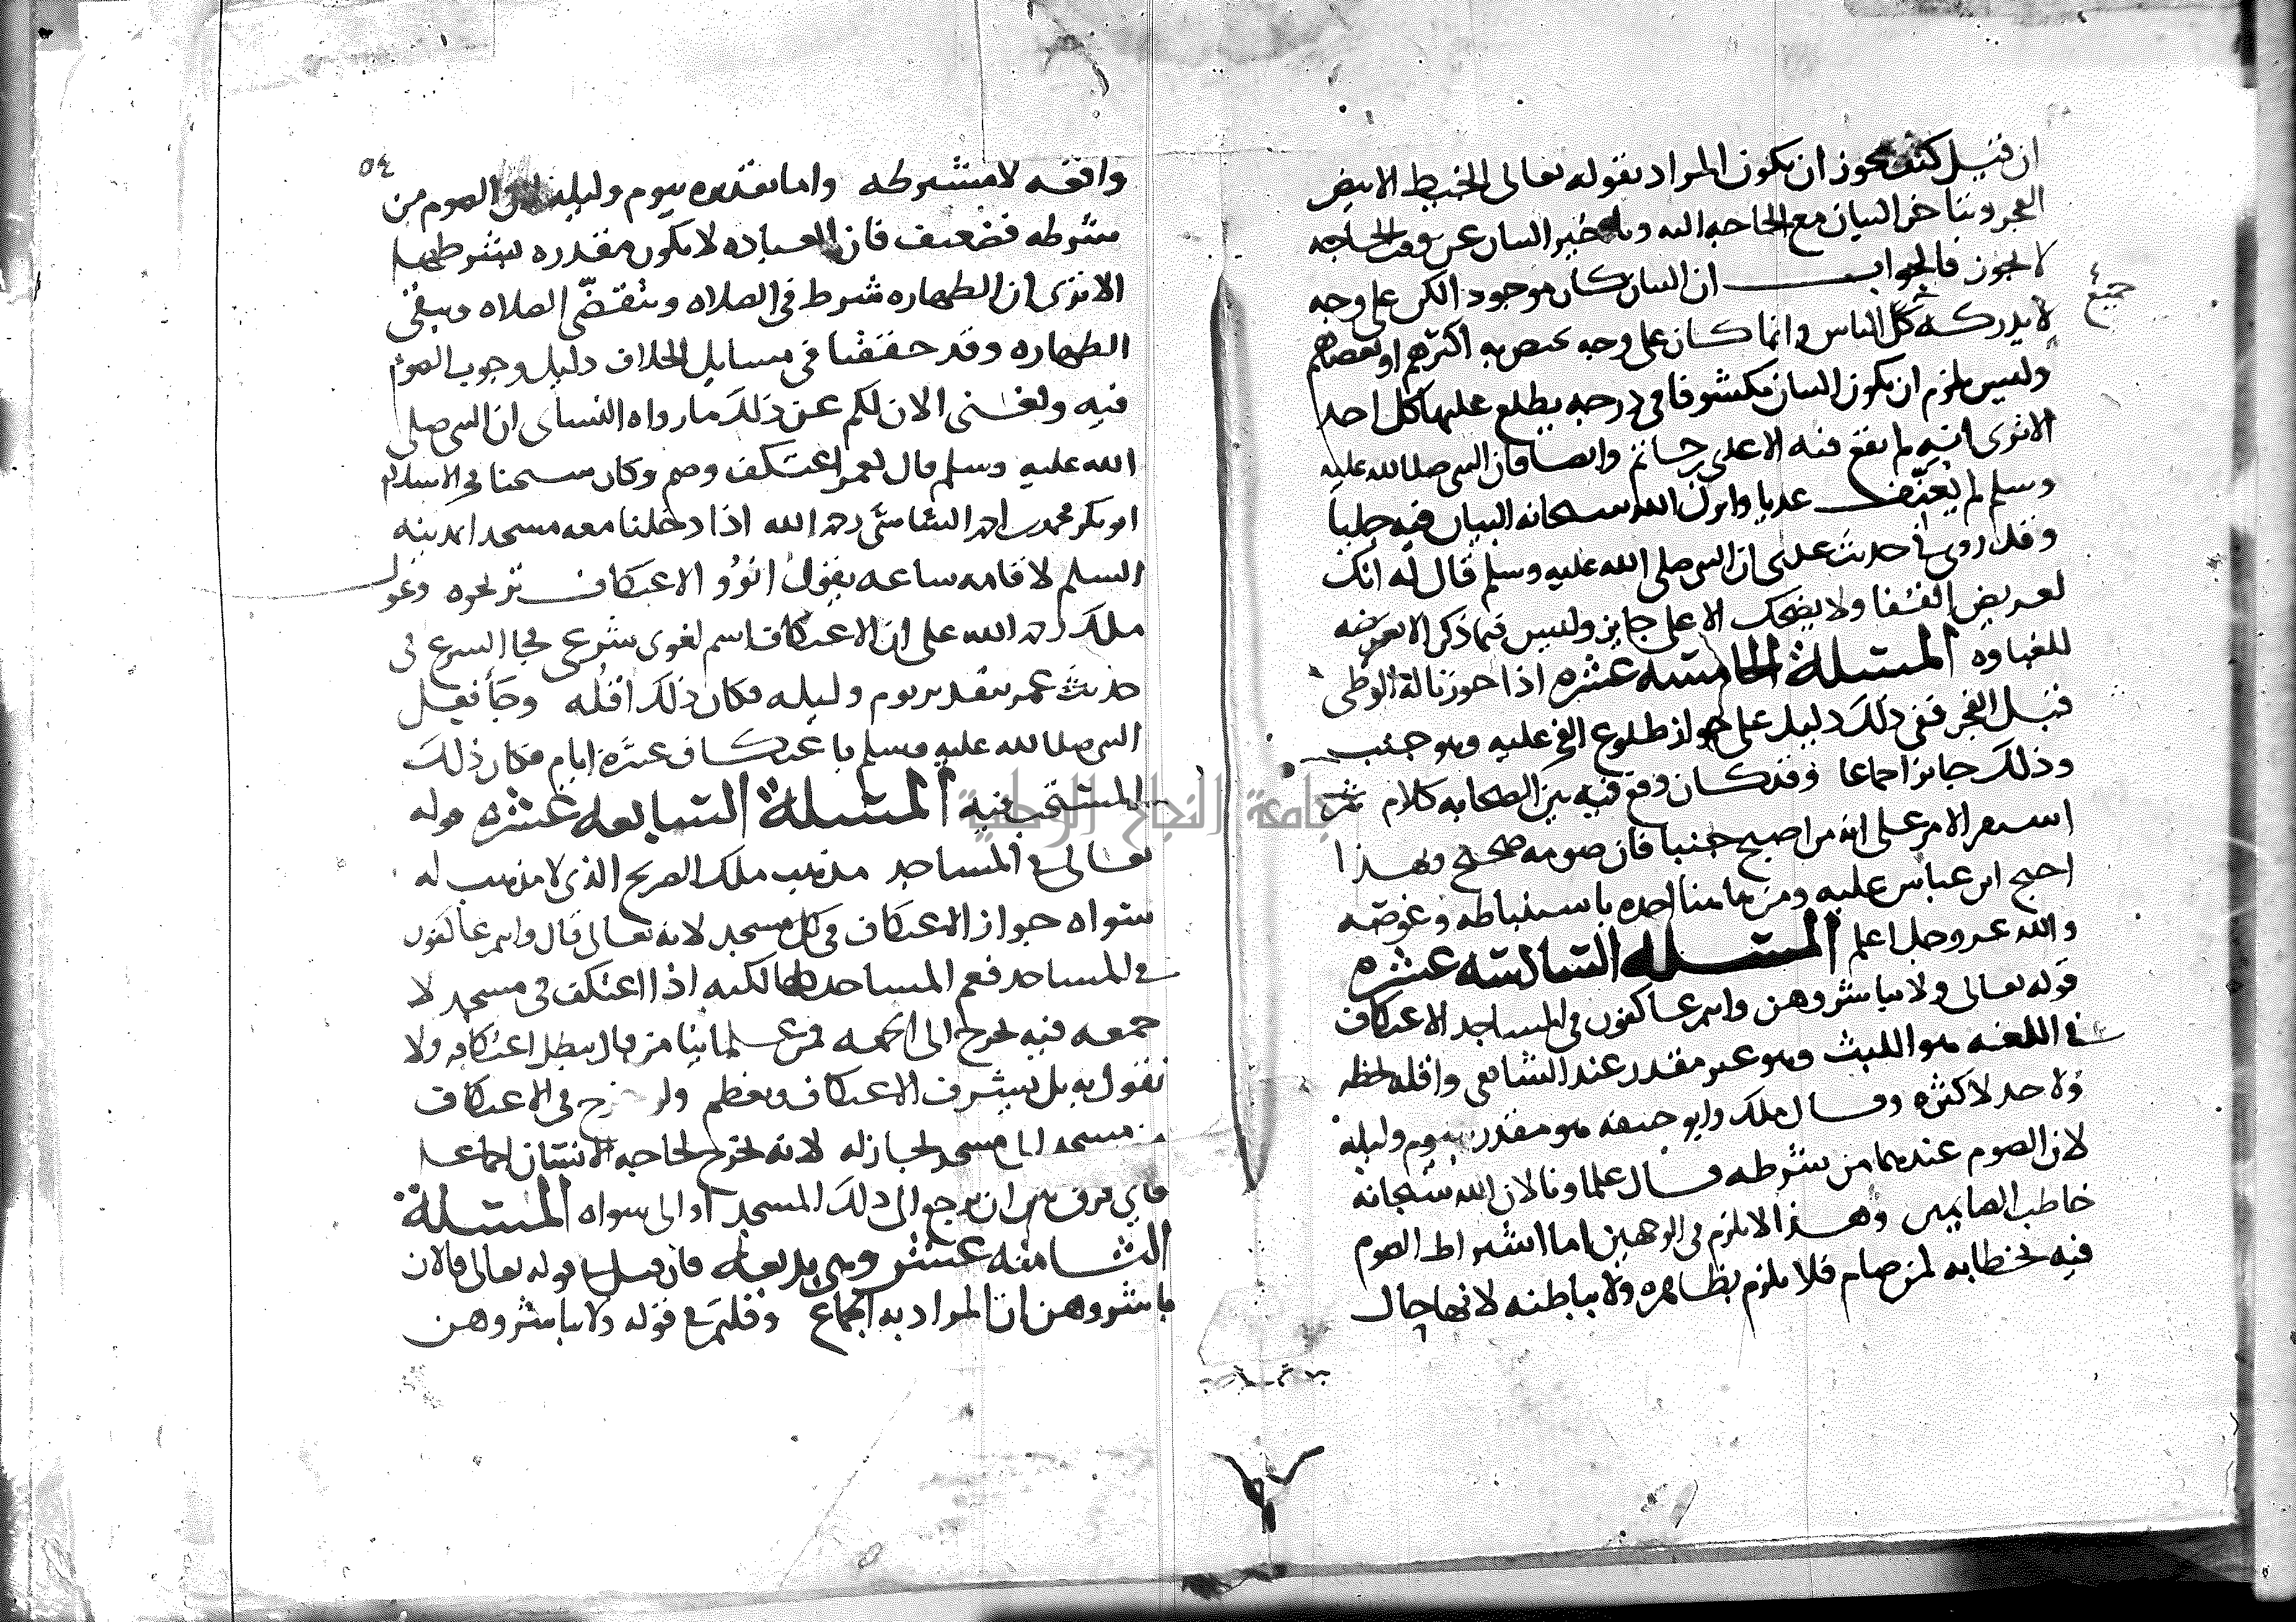 ان قيل كيف يجوز ان يكون المراد بقوله تعالى الخيط الابيض
الفجر ويتاخر البيان مع الحاجه اليه وتاخير البيان عن وقت الحاجه
لا يجوز فالجواب ان البيان كان موجودا لكن على وجه
لا يدركه كل الناس وانما كان على وجه يختص به اكثرهم او بعضهم
جميع
وليس يلزم ان يكون البيان مكشوفا في درجه يطلع عليها كل احد
الا ترى انه لم يقع فيه الا عدي بن حاتم وايضا فان النبي صلى الله عليه
وسلم لم يعنف عديا وانزل الله سبحانه البيان فيه جليا
وقد روي في حديث عدي ان النبي صلى الله عليه وسلم قال له انك
لعريض القفا ولا يضحك الا على جايز وليس فيما ذكر الا تعريضه
للغباوه المسئلة الخامسه عشره اذا جوزنا له الوطى
قبل الفجر ففي ذلك دليل على جواز طلوع الفجر عليه وهو جنب
وذلك جايز اجماعا وقد كان وقع فيه بين الصحابه كلام ثم
استقر الامر على انه من اصبح جنبا فان صومه صحيح وبهذا
احتج ابن عباس عليه ومن هاهنا اخذه باستنباطه وغوصه
والله عز وجل اعلم المسئله السادسه عشره
قوله تعالى ولا تباشروهن وانتم عاكفون في المساجد الاعتكاف
في اللغه هو اللبث وهو غير مقدر عند الشافعي واقله لحظه
ولا حد لاكثره وقال ملك وابو حنيفه هو مقدر بيوم وليله
لان الصوم عندهما من شرطه قال علماونا لان الله سبحانه
خاطب الصايمين وهذا لا يلزم في الوجهين اما اشتراط الصوم
فيه بخطابه لمن صام فلا يلزم بظاهره ولا بباطنه لانها حال
٥٤
واقعه لا مشترطه واما تقديره بيوم وليله لان الصوم من
شرطه فضعيف فان العباده لا تكون مقدره بشرطها
الا ترى ان الطهاره شرط في الصلاه وتنقضي الصلاه وتبقى
الطهاره وقد حققنا في مسايل الخلاف دليل وجوب الصوم
فيه ويغني الان لكم عن ذلك ما رواه النساي ان النبي صلى
الله عليه وسلم قال لعمر اعتكف وصم وكان شيخنا فخر الاسلام
ابو بكر محمد بن احمد الشاشي رحمه الله اذا دخلنا معه مسجدا بمدينه
السلم لاقامه ساعه يقول انوو الاعتكاف تربحوه وعول
ملك رحمه الله على ان الاعتكاف اسم لغوي شرعي فجا الشرع في
حديث عمر بتقدير يوم وليله فكان ذلك اقله وجا فعل
النبي صلى الله عليه وسلم باعتكاف عشره ايام فكان ذلك
المستحب فيه المسئلة السابعه عشره قوله
تعالى في المساجد مذهب ملك الصريح الذي لا مذهب له
سواه جواز الاعتكاف في كل مسجد لانه تعالى قال وانتم عاكفون
في المساجد فعم المساجد كلها لكنه اذا اعتكف في مسجد لا
جمعه فيه يخرج الى الجمعه فمن علماينا من قال يبطل اعتكافه ولا
نقول به بل يشرف الاعتكاف ويعظم ولو خرج في الاعتكاف
من مسجد الى مسجد لجاز له لانه يخرج لحاجه الانسان اجماعا
فاي فرق بين ان يرجع الى ذلك المسجد او الى سواه المسئلة
الثامنه عشر وهي بديعه فان قيل قوله تعالى فالان
باشروهن ان المراد به الجماع وقلتم في قوله ولا تباشروهن
جامعة النجاح الوطنية